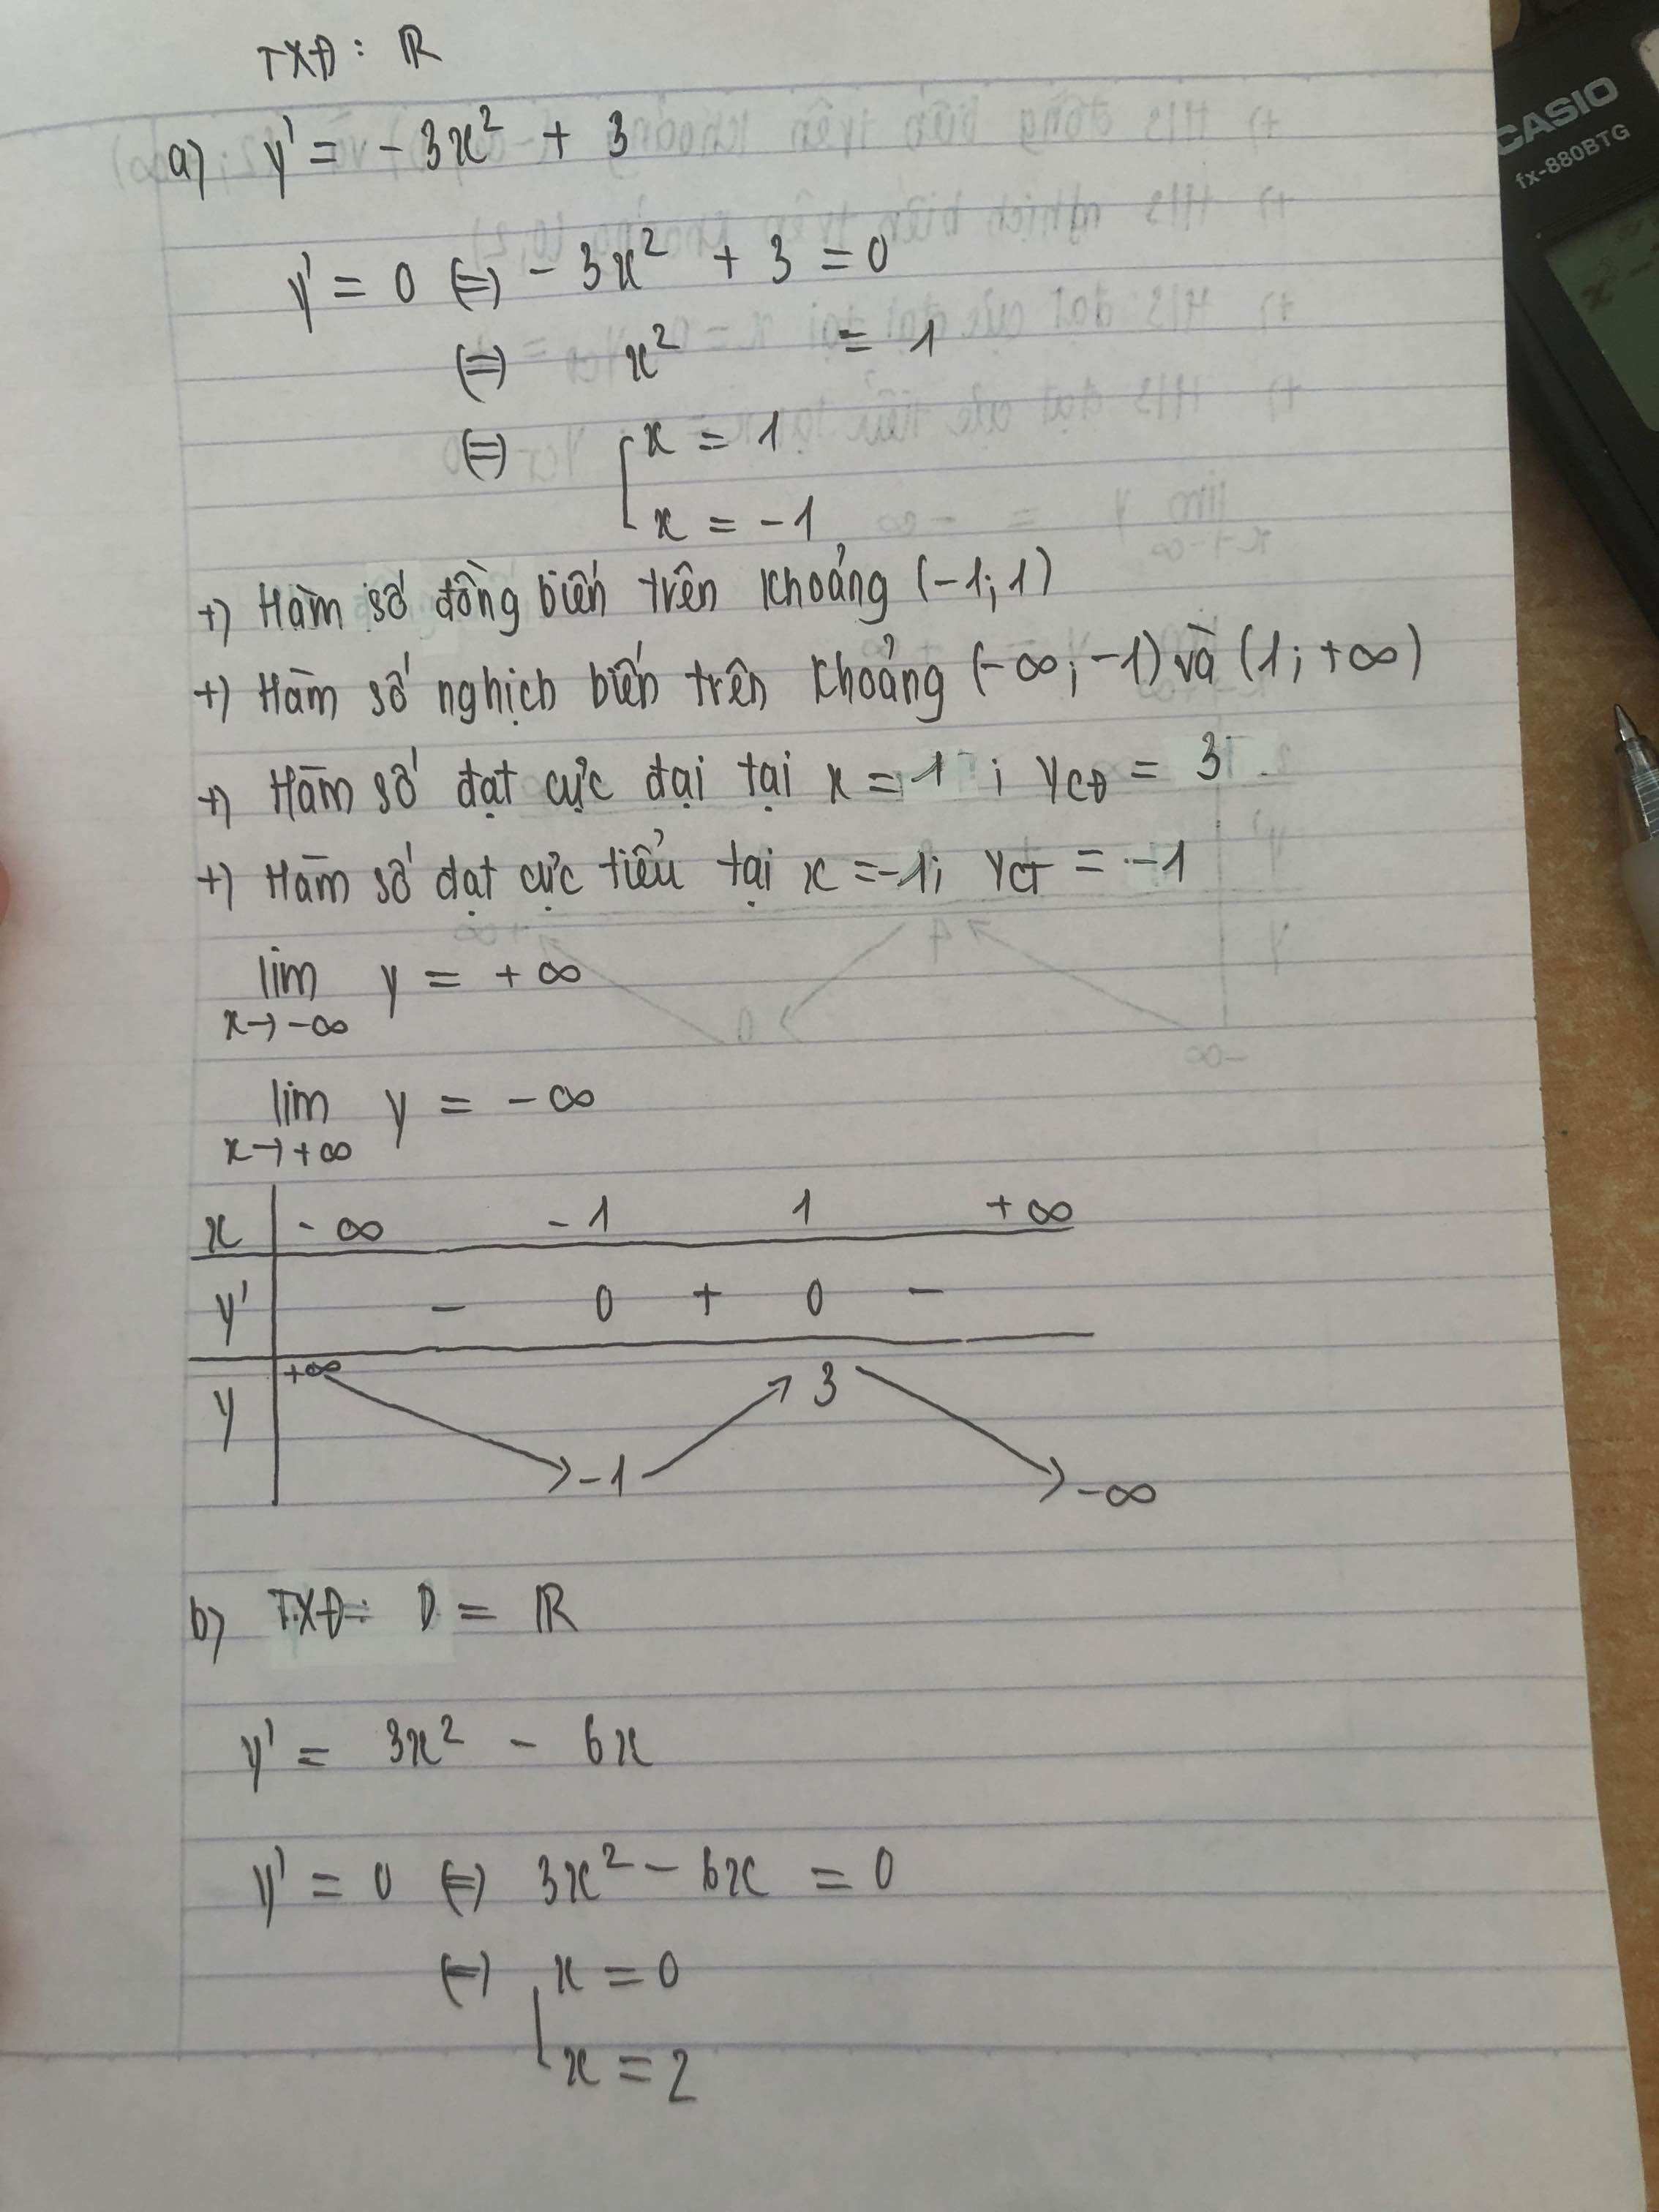 TXĐ : ℝ
a) y' = - 3x² + 3
y' = 0 (=) - 3x² + 3 = 0
(=) x² = 1
(=) [ x = 1
x = -1
+) Hàm số đồng biến trên khoảng (-1; 1)
+) Hàm số nghịch biến trên khoảng (-∞; -1) và (1; +∞)
+) Hàm số đạt cực đại tại x = 1 ; yCĐ = 3
+) Hàm số đạt cực tiểu tại x = -1; yCT = -1
lim y = + ∞
x→ -∞
lim y = - ∞
x→ +∞
x - ∞ -1 1 + ∞
y' - 0 + 0 -
y +∞ -1 3 -∞
b) TXĐ: D = ℝ
y' = 3x² - 6x
y' = 0 (=) 3x² - 6x = 0
(=) [ x = 0
x = 2
CASIO
fx-880BTG